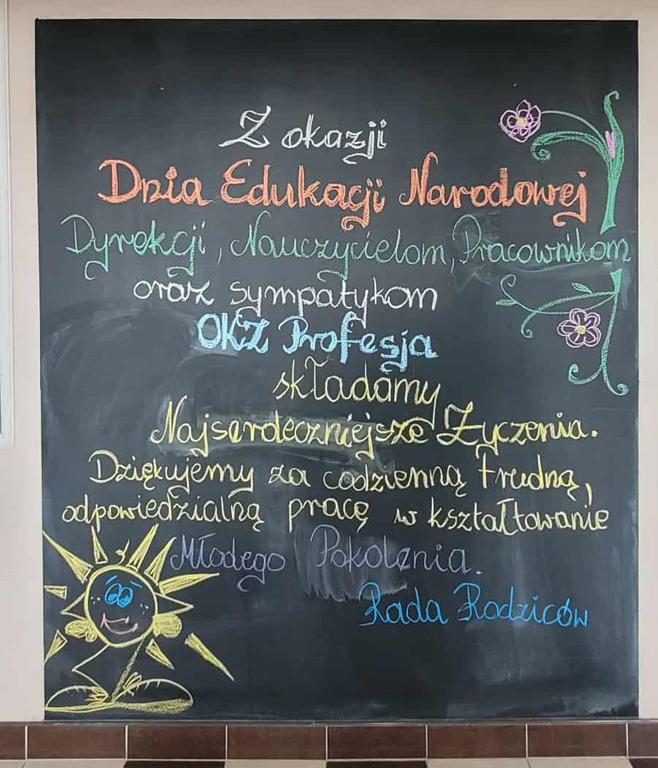 Z okazji
Dnia Edukacji Narodowej
Dyrekcji, Nauczycielom, Pracownikom
oraz sympatykom
OKZ Profesja
składamy
Najserdeczniejsze Życzenia.
Dziękujemy za codzienną trudną,
odpowiedzialną pracę w kształtowanie
Młodego Pokolenia.
Rada Rodziców